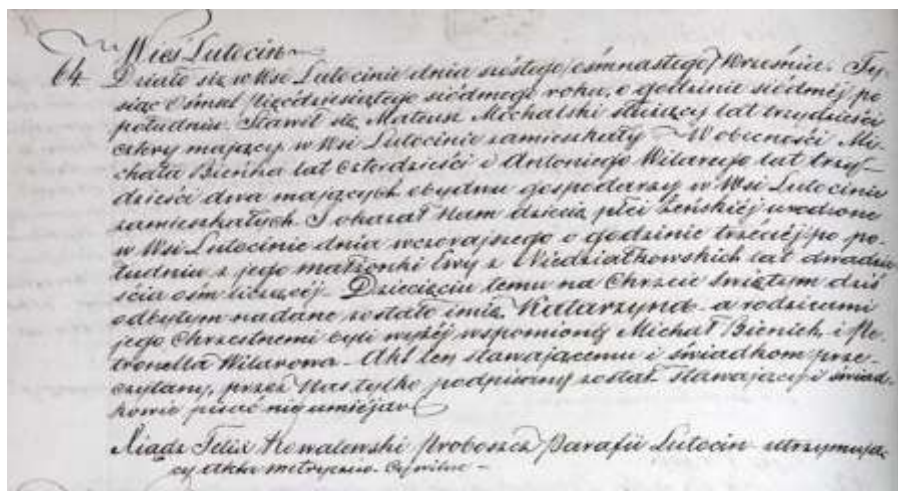 Wieś Lutocin
64. Działo się w Wsi Lutocinie dnia szóstego /ośmnastego/ Września. Ty-
siąc Ośmset sześćdziesiątego siódmego roku, o godzinie siódméj po
południu. Stawił się Mateusz Michalski służący lat trzydzieści
cztery mający, w Wsi Lutocinie zamieszkały W obecności Mi-
chała Bieńka lat czterdzieści i Antoniego Wilarego lat trzy-
dzieści dwa mających obydwu gospodarzy w Wsi Lutocinie
zamieszkałych. I okazał Nam dziecię płci żeńskiéj urodzone
w Wsi Lutocinie dnia wczorajszego o godzinie trzeciéj po po-
łudniu z jego małżonki Ewy z Niedziałkowskich lat dwadzie
ścia ośm liczącéj. Dziecięciu temu na Chrzcie Świętym dziś
odbytym nadane zostało imię Katarzyna a rodzicami
jego Chrzestnemi byli wyżéj wspomioną Michał Bieniek i Pe-
tronella Wilarowa. Akt ten stawającemu i świadkom prze-
czytany, przez Nas tylko podpisany został. Stawający i świad-
kowie pisać nie umiéją
Xiądz Felix Kowalewski Proboszcz Parafii Lutocin utrzymują-
cy akta metryczno Cywilne